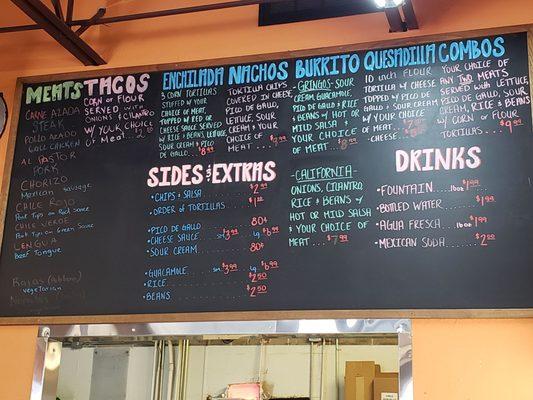 MEATS
CARNE ASADA
STEAK
POLLO ASADO
Grill CHICKEN
AL PASTOR
PORK
CHORIZO
Mexican sausage
CHILE ROJO
Pork Tips on Red Sauce
CHILE VERDE
Pork Tips on Green Sauce
LENGUA
Beef Tongue
Rajas
vegetarian
TACOS
CORN or FLOUR
SERVED with
ONIONS & CILANTRO
w/ YOUR CHOICE
of Meat
ENCHILADA
3 CORN TORTILLAS
STUFFED w/ YOUR
CHOICE of MEAT,
TOPPED w/ RED or
CHEESE SAUCE SERVED
w/ RICE, BEANS, LETTUCE
SOUR CREAM & PICO
DE GALLO
NACHOS
TORTILLA CHIPS
COVERED IN CHEESE,
PICO DE GALLO,
LETTUCE, SOUR
CREAM & YOUR
CHOICE of
MEAT
BURRITO
-GRINGOS- SOUR
CREAM, GUACAMOLE,
PICO DE GALLO, & RICE
& BEANS w/ HOT or
MILD SALSA &
YOUR CHOICE
OF MEAT
-CALIFORNIA-
ONIONS, CILANTRO,
RICE & BEANS w/
HOT or MILD SALSA
& YOUR CHOICE OF
MEAT...$7.99
QUESADILLA
10 inch FLOUR
TORTILLA w/ CHEESE
TOPPED w/ PICO DE
GALLO & SOUR CREAM
w/ YOUR CHOICE
of MEAT
-CHEESE
COMBOS
YOUR CHOICE OF
ANY TWO MEATS
SERVED with LETTUCE,
PICO DE GALLO, SOUR
CREAM, RICE & BEANS
w/ CORN or FLOUR
TORTILLAS....$9.99
SIDES & EXTRAS
• CHIPS & SALSA
• ORDER OF TORTILLAS
• PICO DE GALLO 80¢
• CHEESE SAUCE sm $3.99 Lg $6.99
• SOUR CREAM 80¢
• GUACAMOLE sm $3.99 Lg $6.99
• RICE $2.50
• BEANS $2.50
DRINKS
• FOUNTAIN
• BOTTLED WATER
• AGUA FRESCA
• MEXICAN SODA